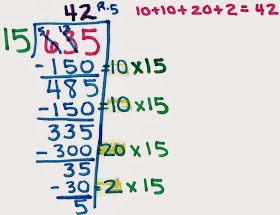 42 R.5 10+10+20+2=42
15 635
-150 =10 x 15
485
-150 =10 x 15
335
-300 =20 x 15
35
-30 =2 x 15
5